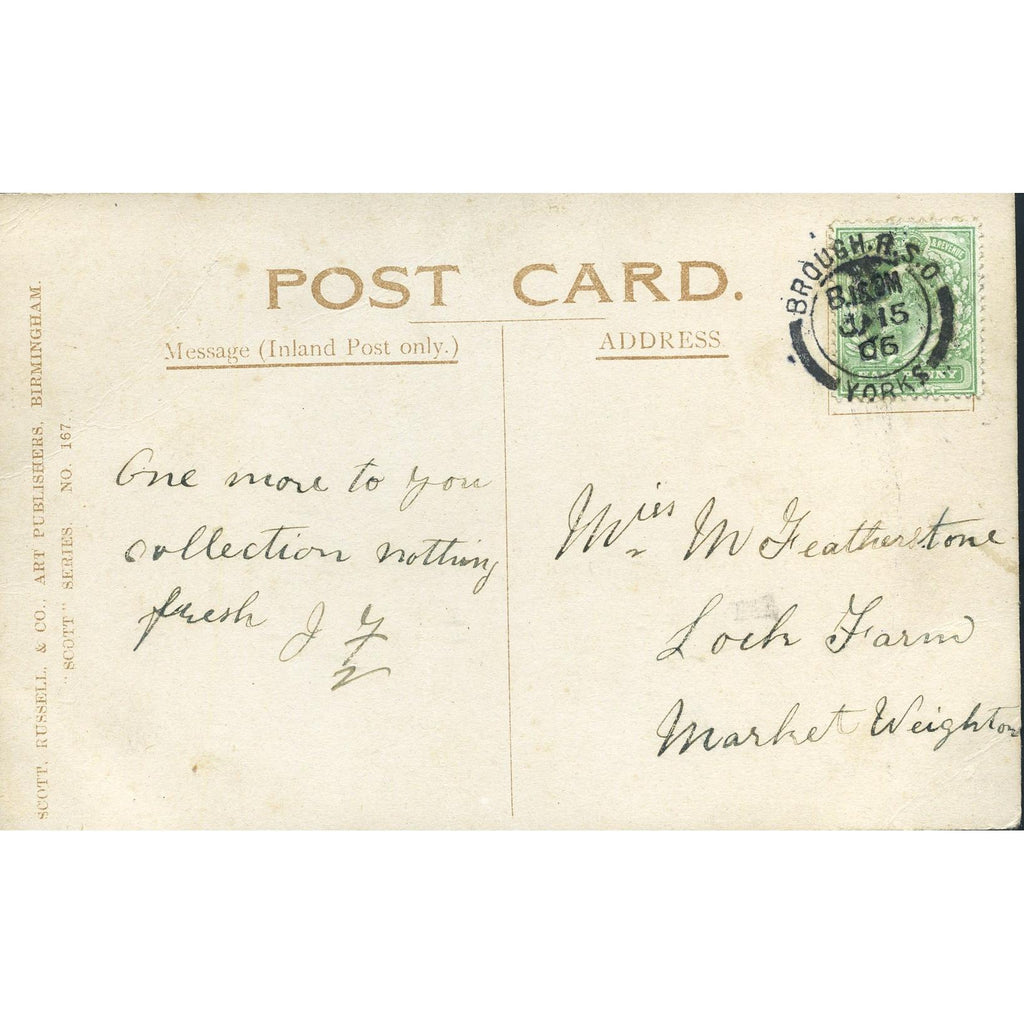 POST CARD.
Message (Inland Post only.)
ADDRESS
BROUGH.R.S.O.
JA 15
06
YORKS
& REVENUE
One more to you
collection nothing
fresh J F
Miss M Featherstone
Loch Farm
Market Weighton
SCOTT, RUSSELL, & CO., ART PUBLISHERS, BIRMINGHAM.
"SCOTT" SERIES NO. 167.